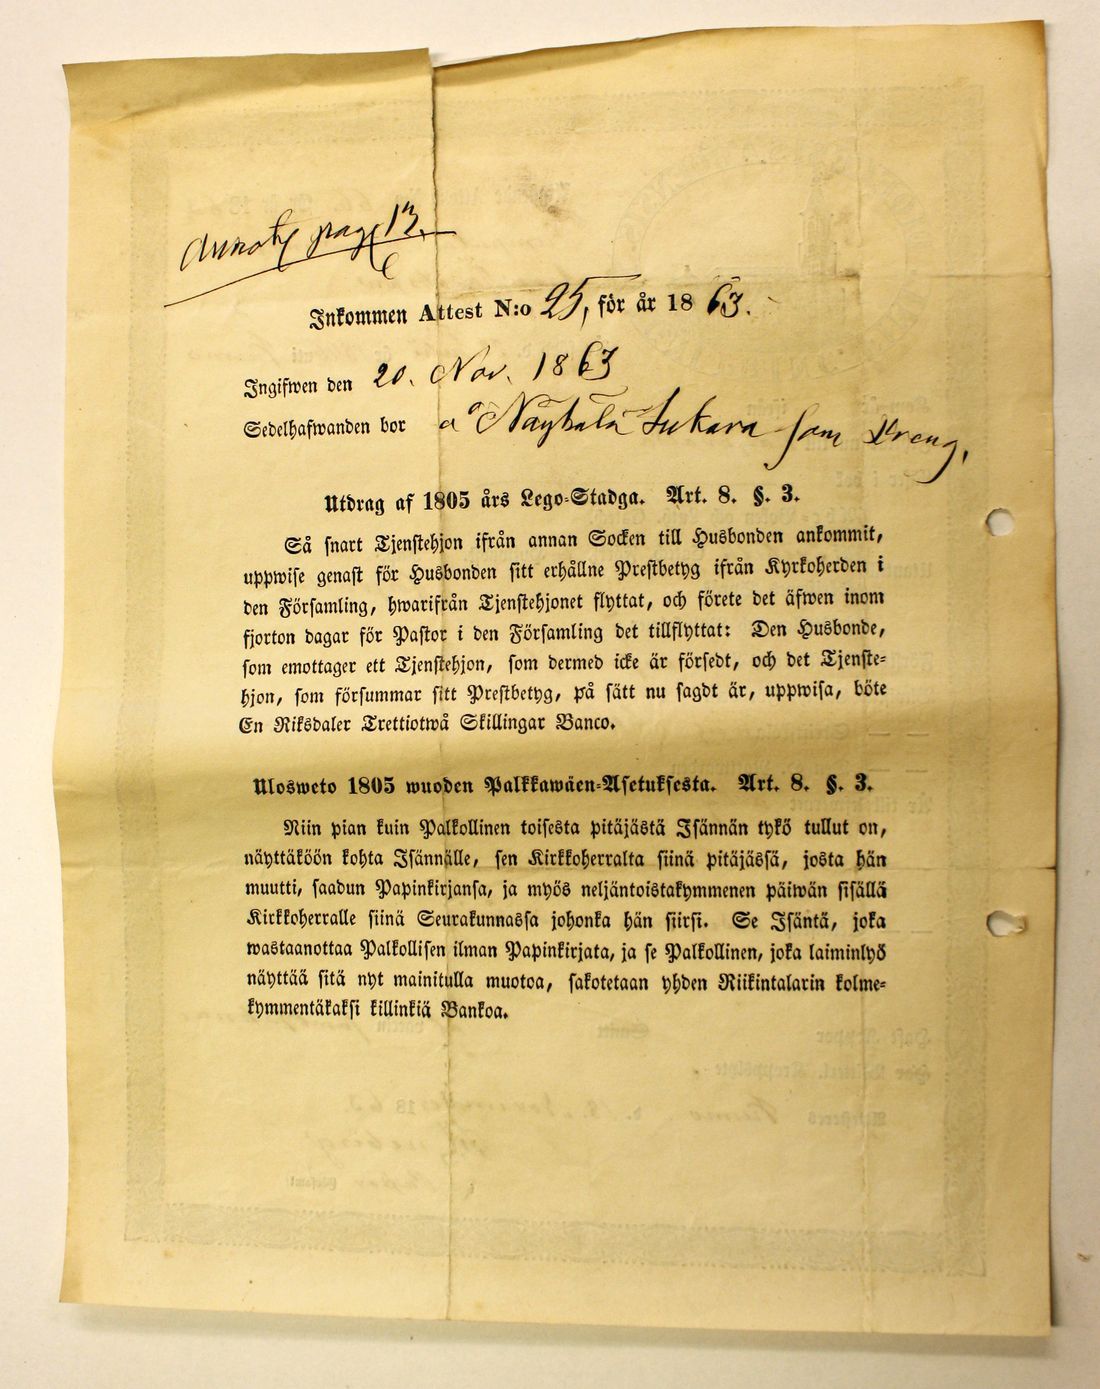 Annoty pag 13.
Inkommen Attest N:o 25, för år 1863.
Ingifwen den 20. Nov. 1863
Sedelhafwanden bor å Näyhälä Sukara som Dreng,
Utdrag af 1805 års Lego-Stadga. Art. 8. §. 3.
Så snart Tjenstehjon ifrån annan Socken till Husbonden ankommit,
uppwise genast för Husbonden sitt erhållne Prestbetyg ifrån Kyrkoherden i
den Församling, hwarifrån Tjenstehjonet flyttat, och förete det äfwen inom
fjorton dagar för Pastor i den Församling det tillflyttat: Den Husbonde,
som emottager ett Tjenstehjon, som dermed icke är försedt, och det Tjenste-
hjon, som försummar sitt Prestbetyg, på sätt nu sagdt är, uppwisa, böte
En Riksdaler Trettiotwå Skillingar Banco.
Ulosweto 1805 wuoden Palkkawäen-Asetuksesta. Art. 8. §. 3.
Niin pian kuin Palkollinen toisesta pitäjästä Isännän tykö tullut on,
näyttäköön kohta Isännälle, sen Kirkkoherralta siinä pitäjässä, josta hän
muutti, saadun Papinkirjansa, ja myös neljäntoistakymmenen päiwän sisällä
Kirkkoherralle siinä Seurakunnassa johonka hän siirsi. Se Isäntä, joka
wastaanottaa Palkollisen ilman Papinkirjata, ja se Palkollinen, joka laiminlyö
näyttää sitä nyt mainitulla muotoa, sakotetaan yhden Riikintalarin kolme-
kymmentäkaksi killinkiä Bankoa.